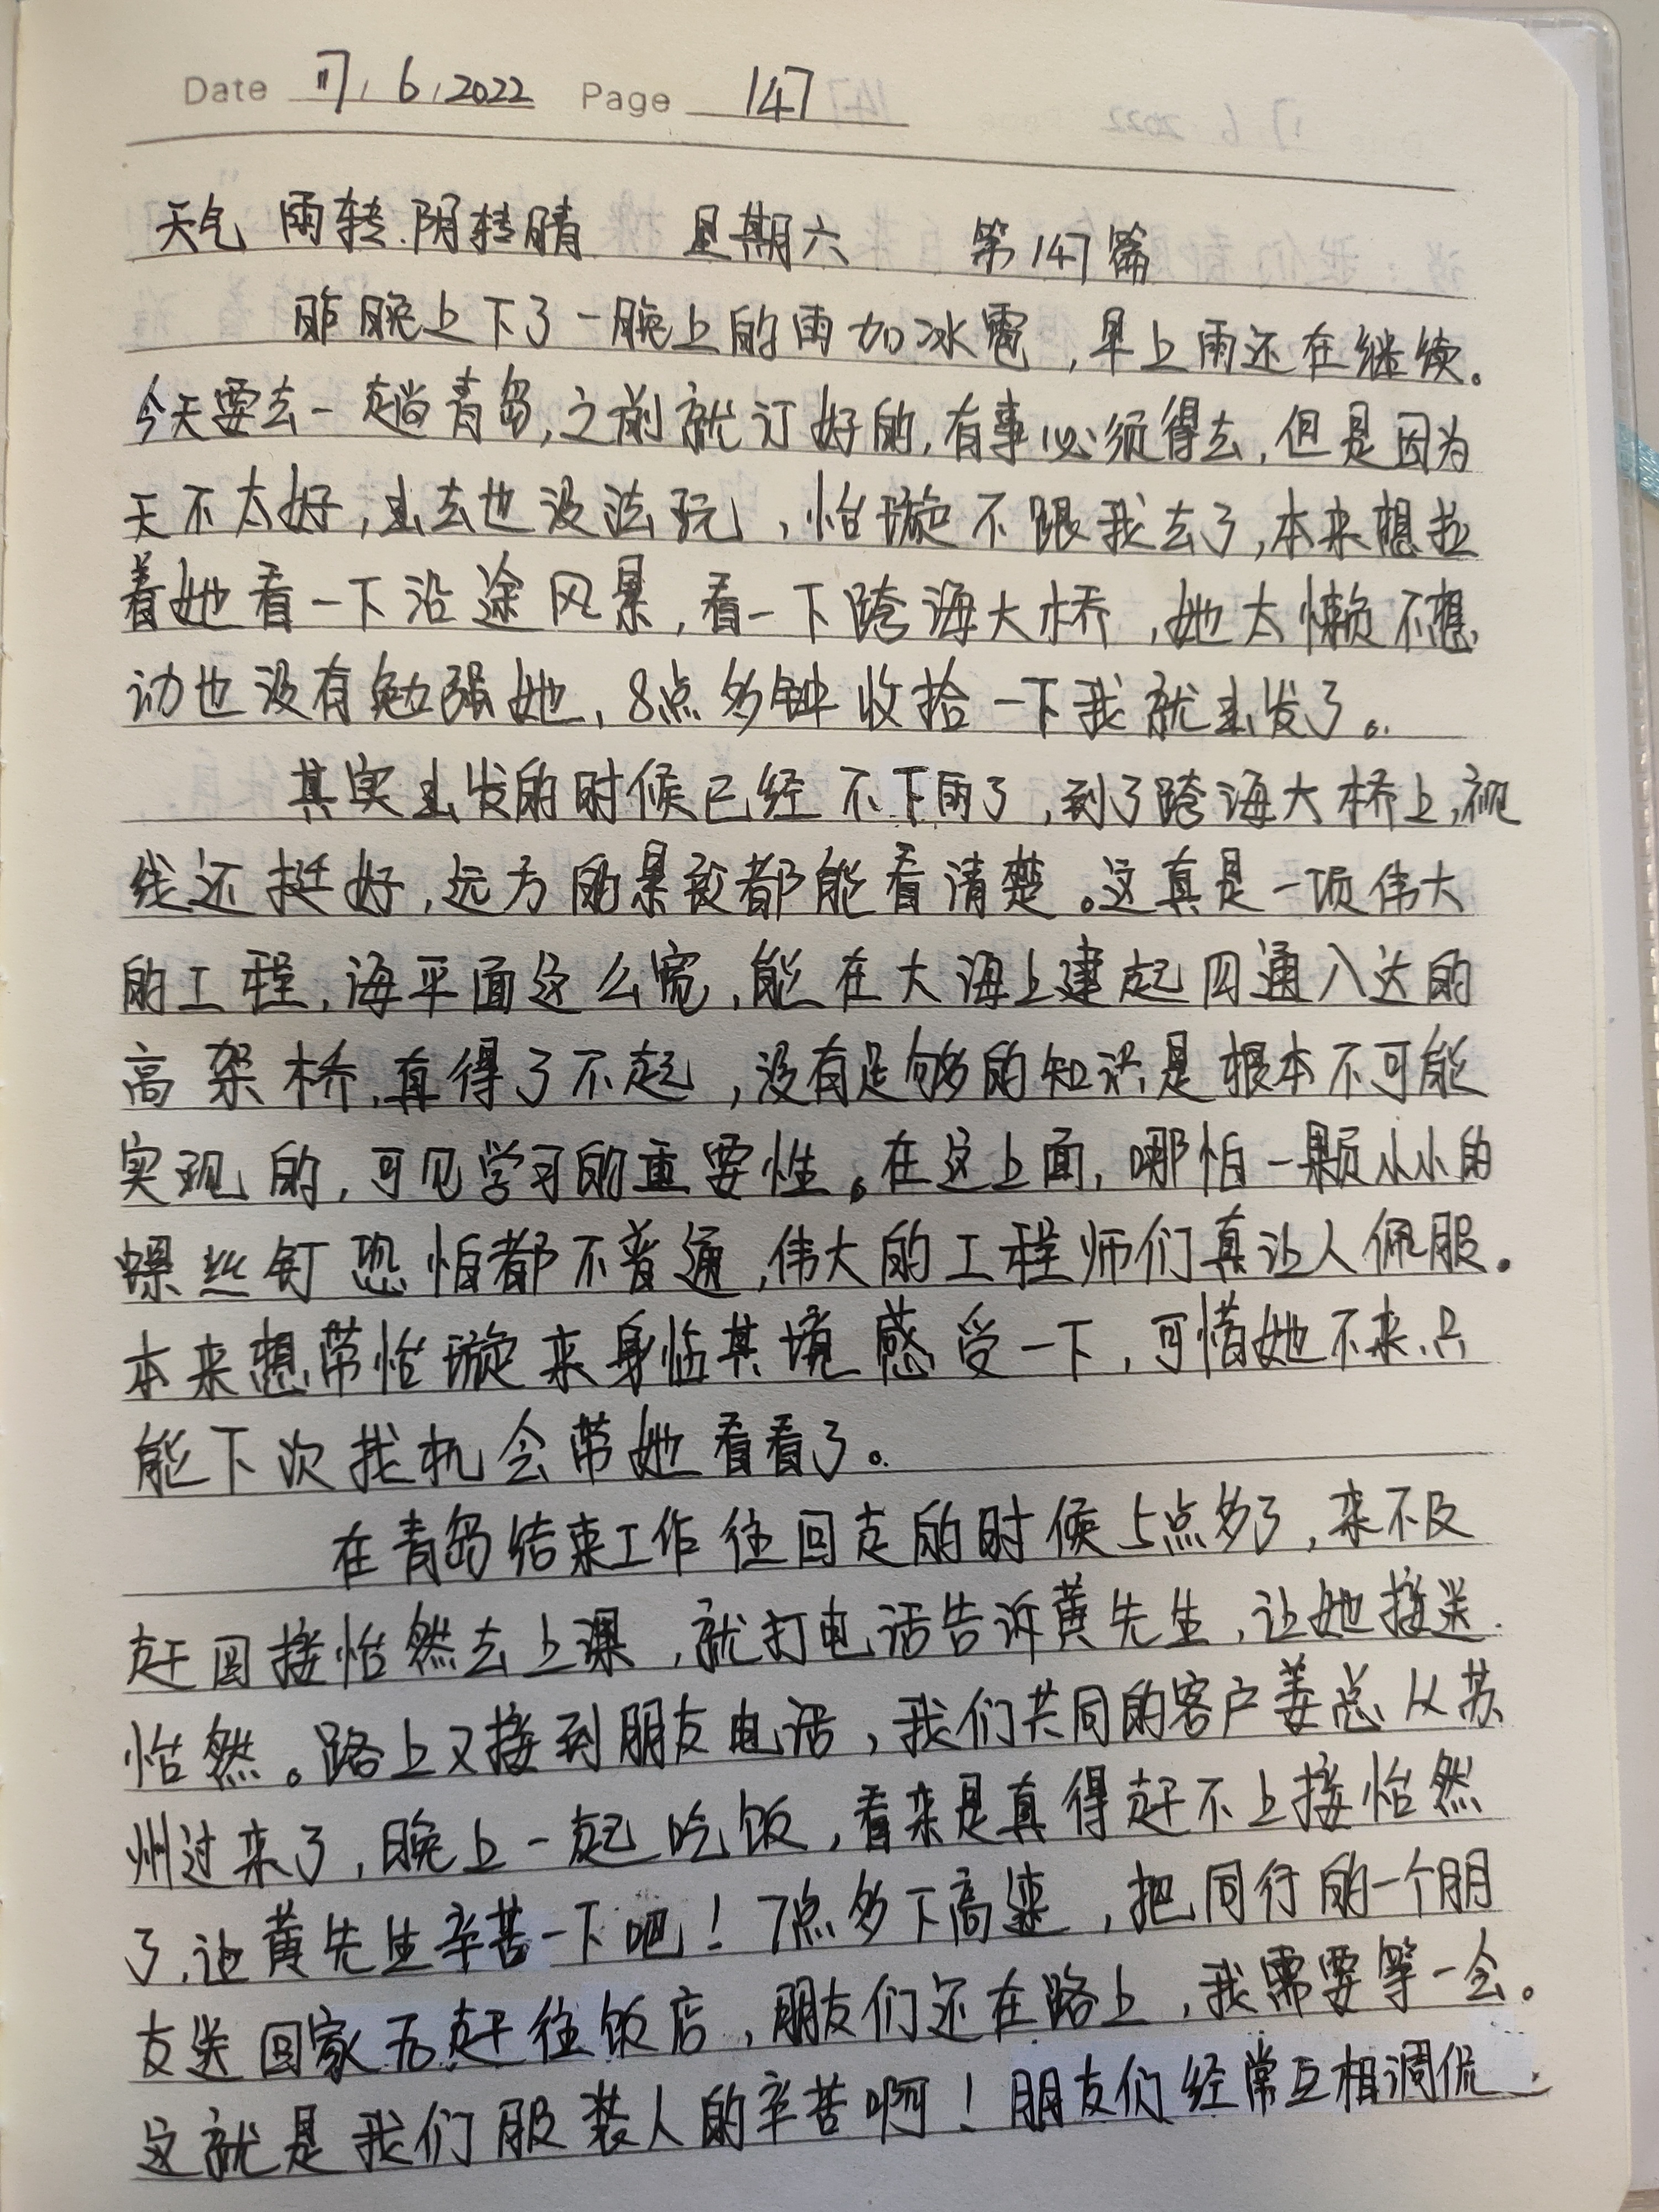 Date 11, 6, 2022 Page 147
天气 雨转阴转晴 星期六 第147篇
昨晚上下了一晚上的雨加冰雹，早上雨还在继续。
今天要去一趟青岛，之前就订好的，有事必须得去，但是因为
天不太好，出去也没法玩，怡璇不跟我去了，本来想拉
着她看一下沿途风景，看一下跨海大桥，她太懒不想
动也没有勉强她，8点多钟收拾一下我就出发了。
其实出发的时候已经不下雨了，到了跨海大桥上，视
线还挺好，远方的景致都能看清楚。这真是一项伟大
的工程，海平面这么宽，能在大海上建起四通八达的
高架桥，真得了不起，没有足够的知识是根本不可能
实现的，可见学习的重要性。在这上面，哪怕一颗小小的
螺丝钉恐怕都不普通，伟大的工程师们真让人佩服。
本来想带怡璇来身临其境感受一下，可惜她不来，只
能下次找机会带她看看了。
在青岛结束工作往回走的时候5点多了，来不及
赶回接怡然去上课，就打电话告诉黄先生，让她接送
怡然。路上又接到朋友电话，我们共同的客户姜总从苏
州过来了，晚上一起吃饭，看来是真得赶不上接怡然
了，让黄先生辛苦一下吧！7点多下高速，把同行的一个朋
友送回家后赶往饭店，朋友们还在路上，我需要等一会。
这就是我们服装人的辛苦啊！朋友们经常互相调侃